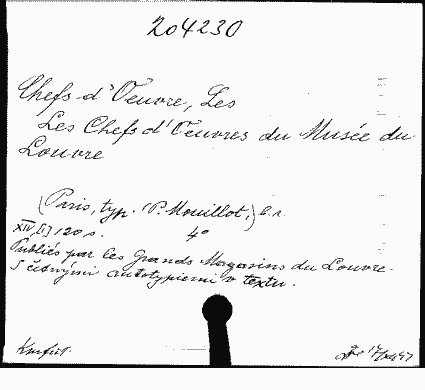 204230
Chefs-d'Oeuvre, Les
Les Chefs d'Oeuvres du Musée du
Louvre
(Paris, typ. (P. Mouillot,) b.r.
XIV, [I] 120 s. 4°
Publiés par les Grands Magasins du Louvre.
S četnými autotypiemi v textu.